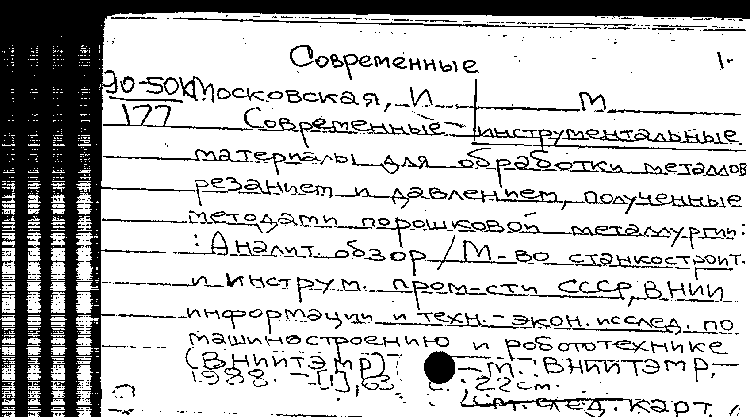 Современные
90-50К Московская, И М
177
Современные инструментальные
материалы для обработки металлов
резанием и давлением, полученные
методами порошковой металлургии:
: Аналит. обзор / М-во станкостроит.
и инструм. пром-сти СССР, ВНИИ
информации и техн.-экон. исслед. по
машиностроению и робототехнике
(ВНИИТЭМР). - М.: ВНИИТЭМР, -
1988. - [1], 63 с.: 22 см.
См. след. карт.